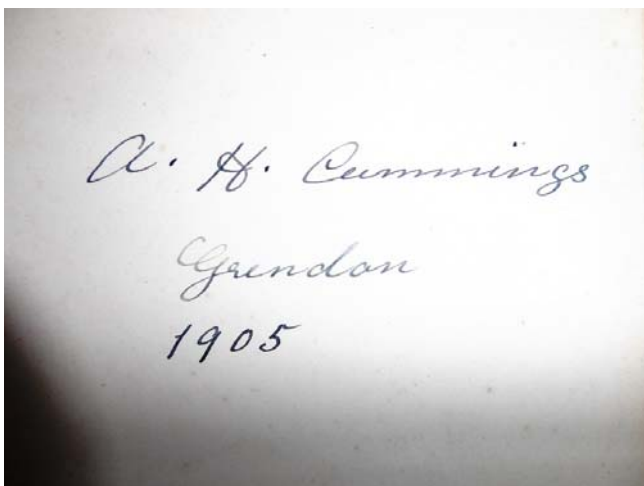 A. H. Cummings
Grendon
1905